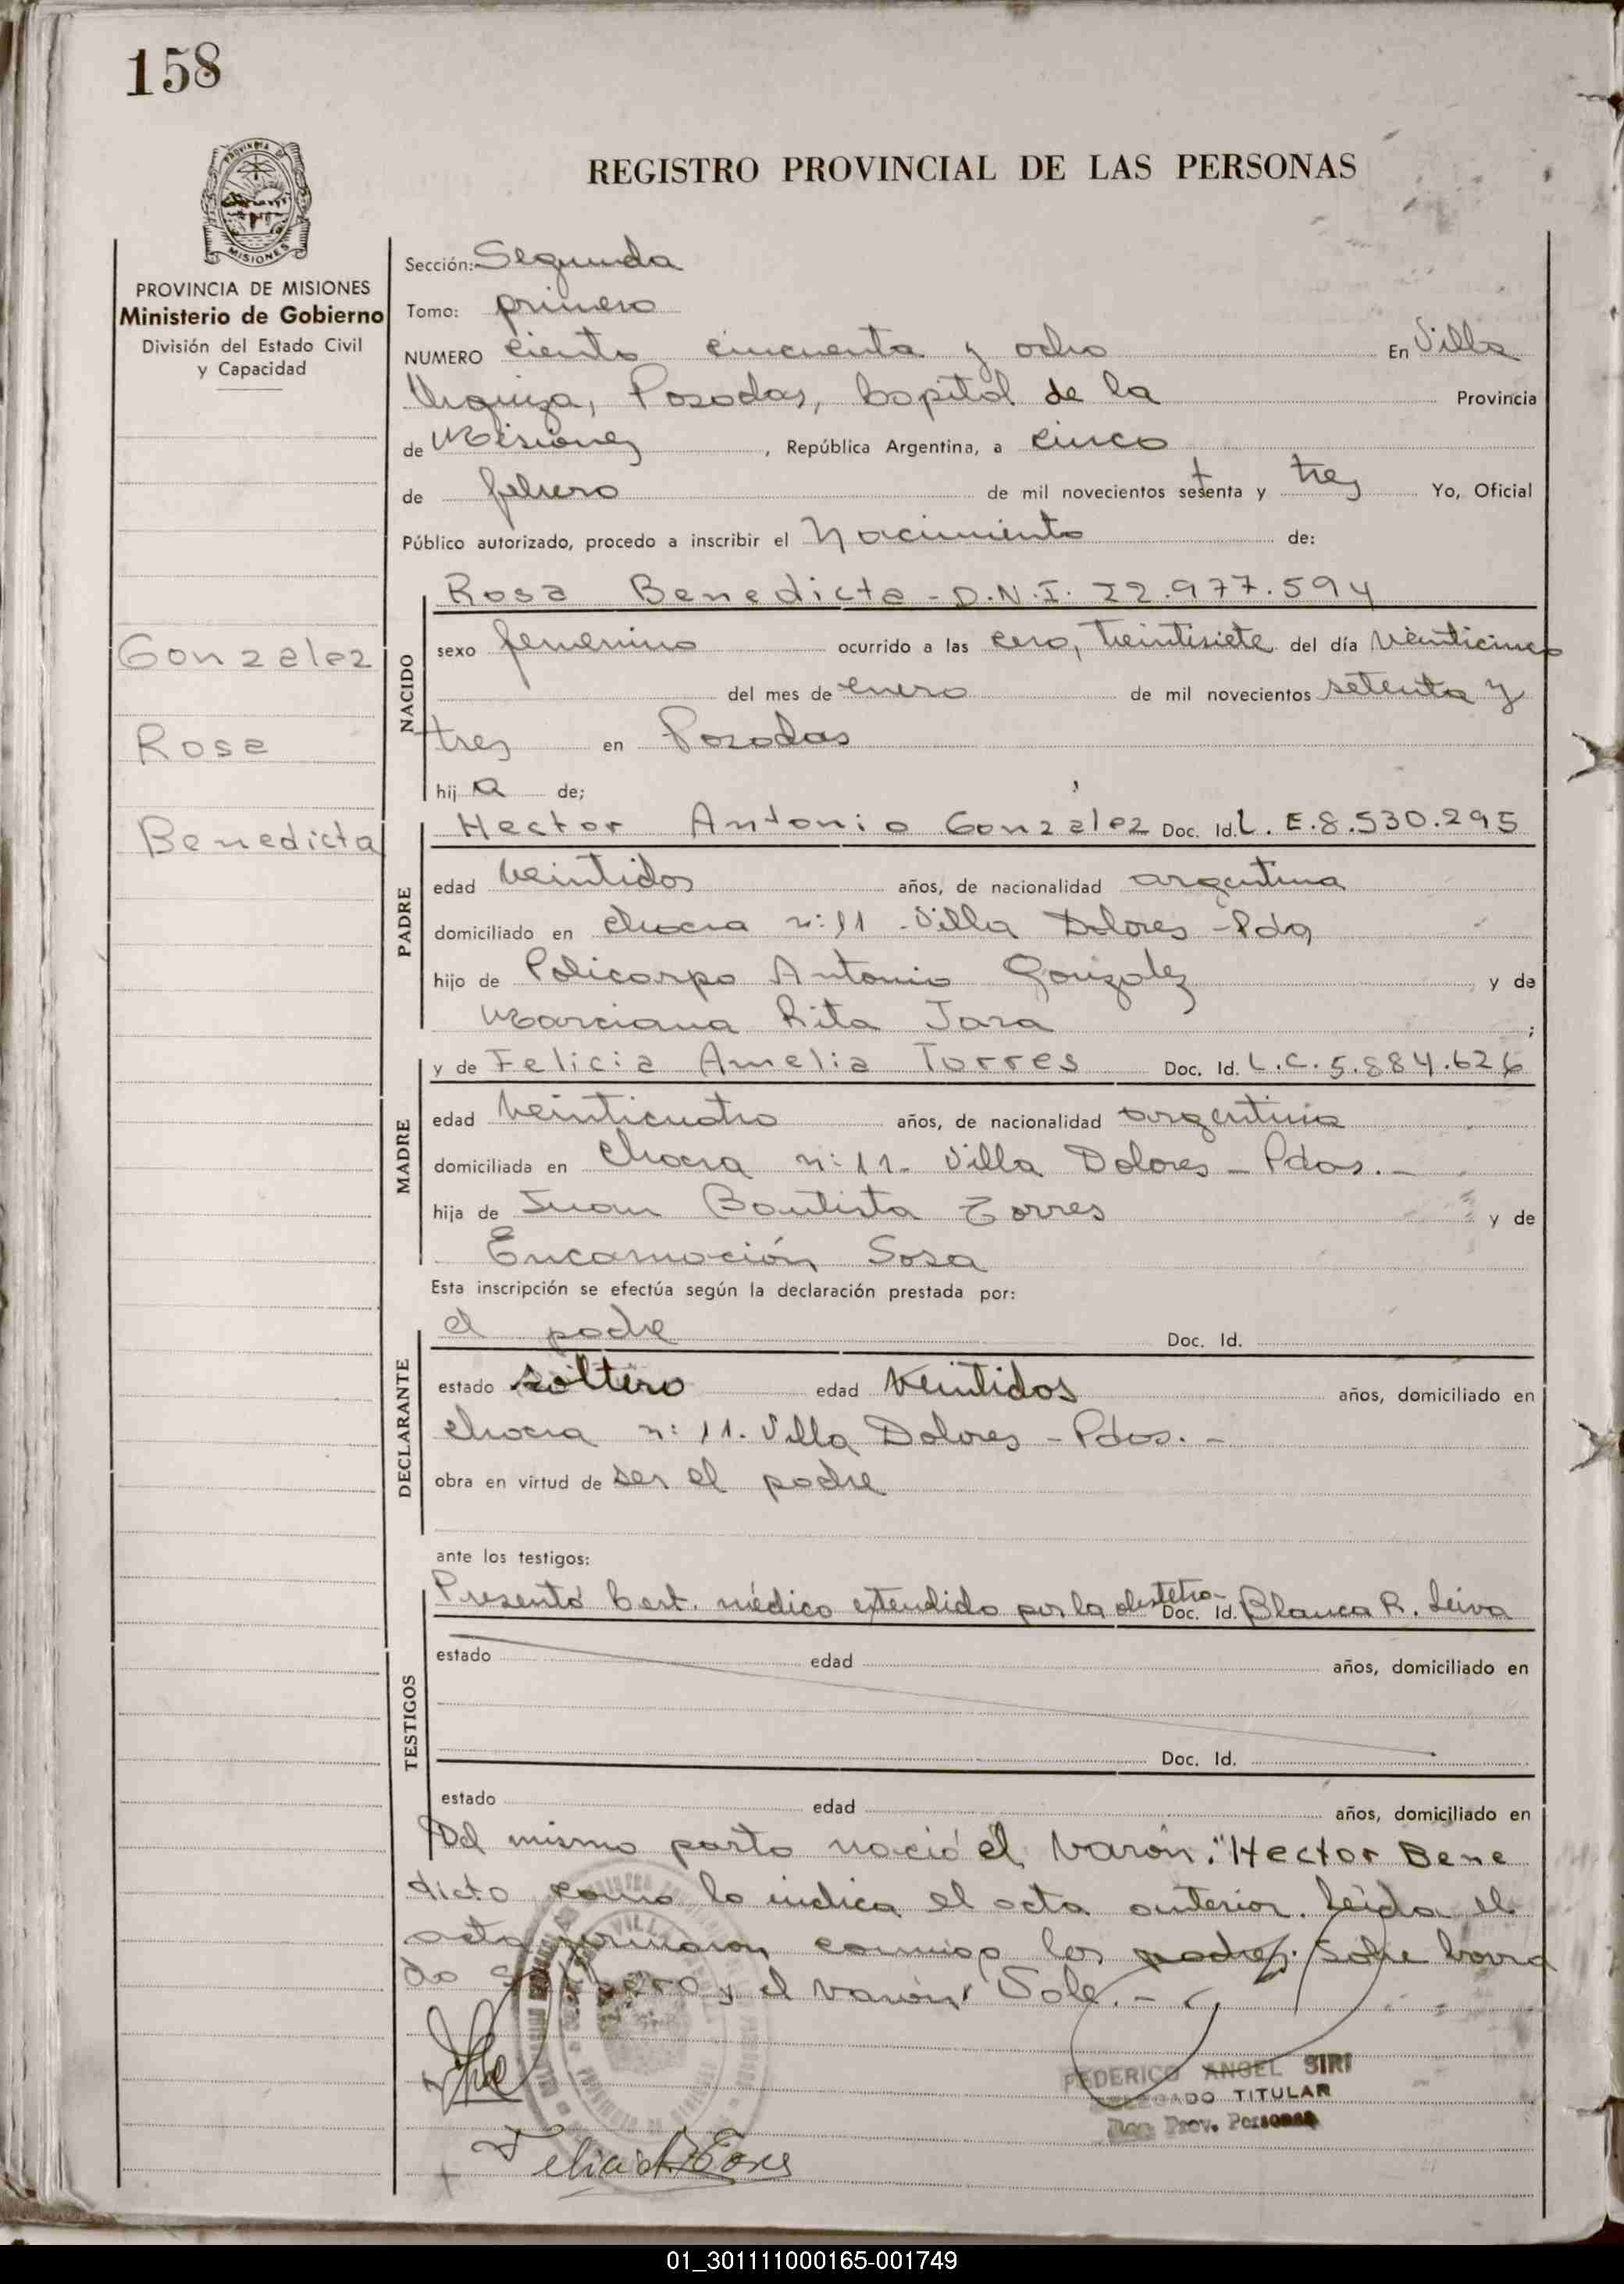 158
REGISTRO PROVINCIAL DE LAS PERSONAS
PROVINCIA DE MISIONES
Ministerio de Gobierno
División del Estado Civil
y Capacidad
Gonzalez
Rosa
Benedicta
Sección: Segunda
Tomo: primero
NUMERO ciento cincuenta y ocho En Villa
Urquiza, Posadas, Capital de la Provincia
de Misiones, República Argentina, a cinco
de febrero de mil novecientos setenta y tres Yo, Oficial
Público autorizado, procedo a inscribir el Nacimiento de:
NACIDO
Rosa Benedicta - D.N.I. 22.977.594
sexo femenino ocurrido a las cero, treintisiete del día veinticinco
del mes de enero de mil novecientos setenta y
tres en Posadas
hij a de;
PADRE
Hector Antonio Gonzalez Doc. Id. L. E. 8.530.295
edad veintidos años, de nacionalidad argentina
domiciliado en chacra n: 11 - Villa Dolores - Pdas
hijo de Policarpo Antonio Gonzalez y de
Marciana Rita Jara ;
MADRE
y de Felicia Amelia Torres Doc. Id. L.C. 5.884.626
edad veinticuatro años, de nacionalidad argentina
domiciliada en chacra n: 11 - Villa Dolores - Pdas. -
hija de Juan Bautista Torres y de
Encarnación Sosa
Esta inscripción se efectúa según la declaración prestada por:
DECLARANTE
el padre Doc. Id.
estado soltero edad veintidos años, domiciliado en
chacra n: 11. Villa Dolores - Pdas. -
obra en virtud de ser el padre
ante los testigos:
TESTIGOS
Presentó Cert. médico extendido por la obstetra - Doc. Id. Blanca R. Leiva
estado edad años, domiciliado en
Doc. Id.
estado edad años, domiciliado en
Del mismo parto nació el varón: "Hector Bene
dicto como lo indica el acta anterior. Leída el
acta firmaron conmigo los padres. Sobre borra
do y el varón Vale. -
FEDERICO ANGEL SIRI
DELEGADO TITULAR
Reg. Prov. Personas
Felicia A Torres
01_301111000165-001749